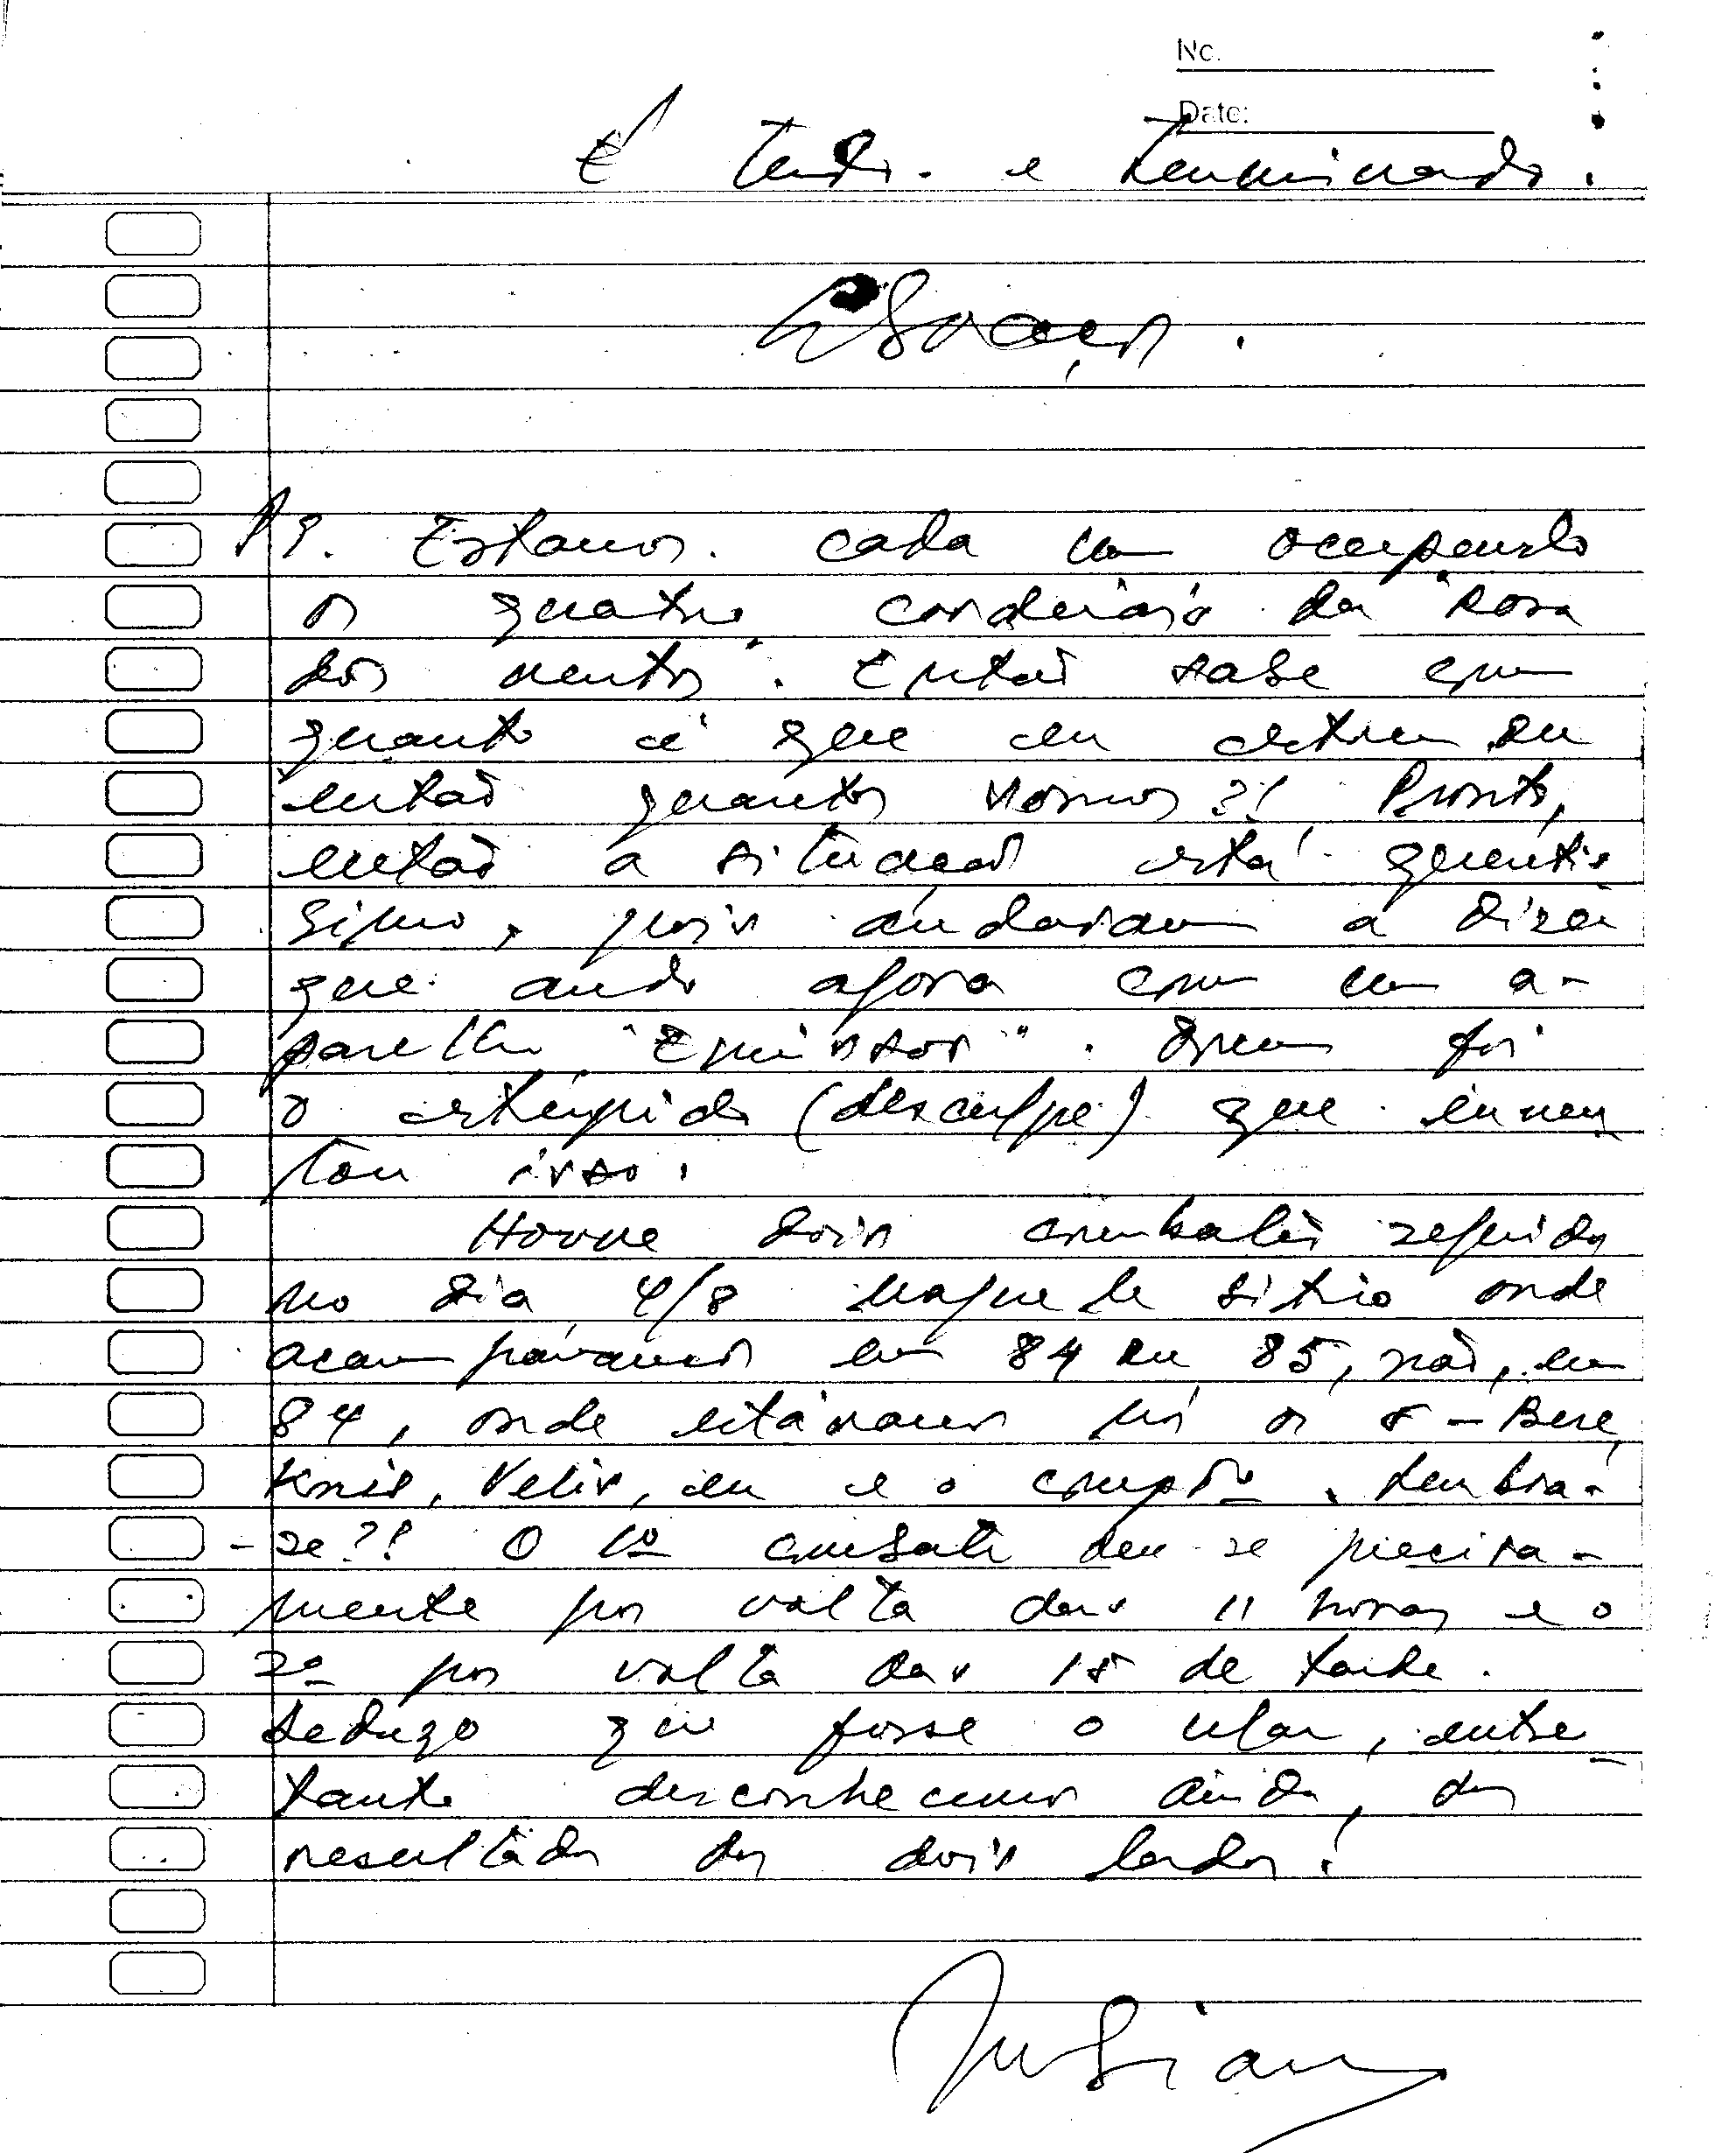 No.
Date:
É tudo. e terminado.
PS. Estamos. cada um ocupando
os quatro cardeiais da Rosa
dos ventos. Então sabe em
quanto é que eu estou ou
então quantos somos?! Pronto,
então a situação está quentis
simo, pois andavam a dizer
que ando agora com um a-
parelho "Emissor". Quem foi
o estúpido (desculpe) que inven
tou isso.
Houve dois combates seguidos
no dia 4/8 naquele sitio onde
acampávamos em 84 ou 85, não, em
84, onde estávamos nós os 5 - Bere,
Knis, Velis, eu e o compº. Lembra-
-se?! O 1º combate deu-se precisa-
mente por volta das 11 horas e o
2º por volta das 15 de tarde.
Deduzo que fosse o Ular, entre
tanto desconhecemos ainda, os
resultados dos dois lados.